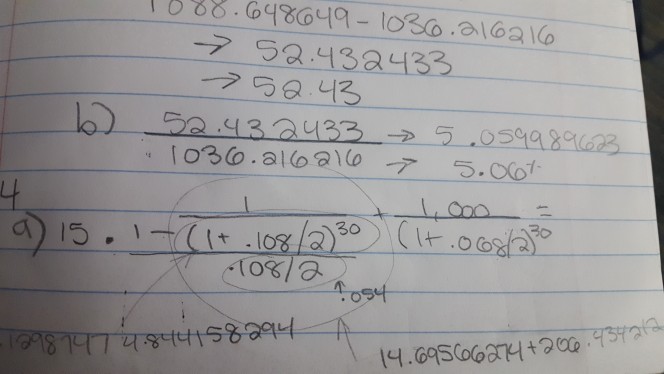 1088.648649 - 1036.216216
→ 52.432433
→ 52.43
b) 52.432433 → 5.059989623
1036.216216 → 5.06%
4
a) 15 · 1 - 1 + 1,000 =
(1+ .108/2)30 (1+ .068/2)30
.108/2
↑.054
4.844158294
14.69566274+206.434212